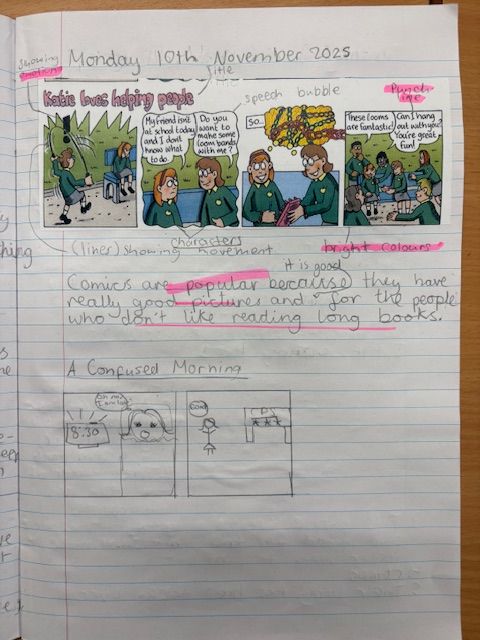 Monday 10th November 2025
showing
emotion
title
speech bubble
Punch
line
Katie loves helping people
!
My friend isn't
at school today
and I don't
know what
to do.
Do you
want to
make some
loom bands
with me?
So...
These looms
are fantastic!
Can I hang
out with you?
You're great
fun!
characters
(lines) showing movement
bright colours
it is good
Comics are popular because they have
really good pictures and for the people
who don't like reading long books.
A Confused Morning
8:30
Oh no!
I am late